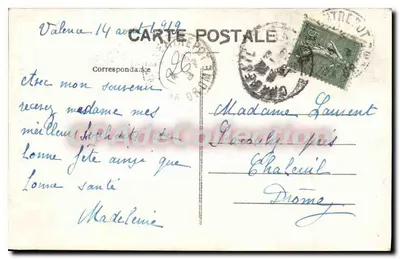 Valence 14 aout 1919
CARTE POSTALE
Correspondance
Avec mon souvenir
recevez madame mes
meilleurs souhaits de
bonne fête ainsi que
bonne santé
Madeleine
Madame Laurent
près
Chabeuil
Drôme